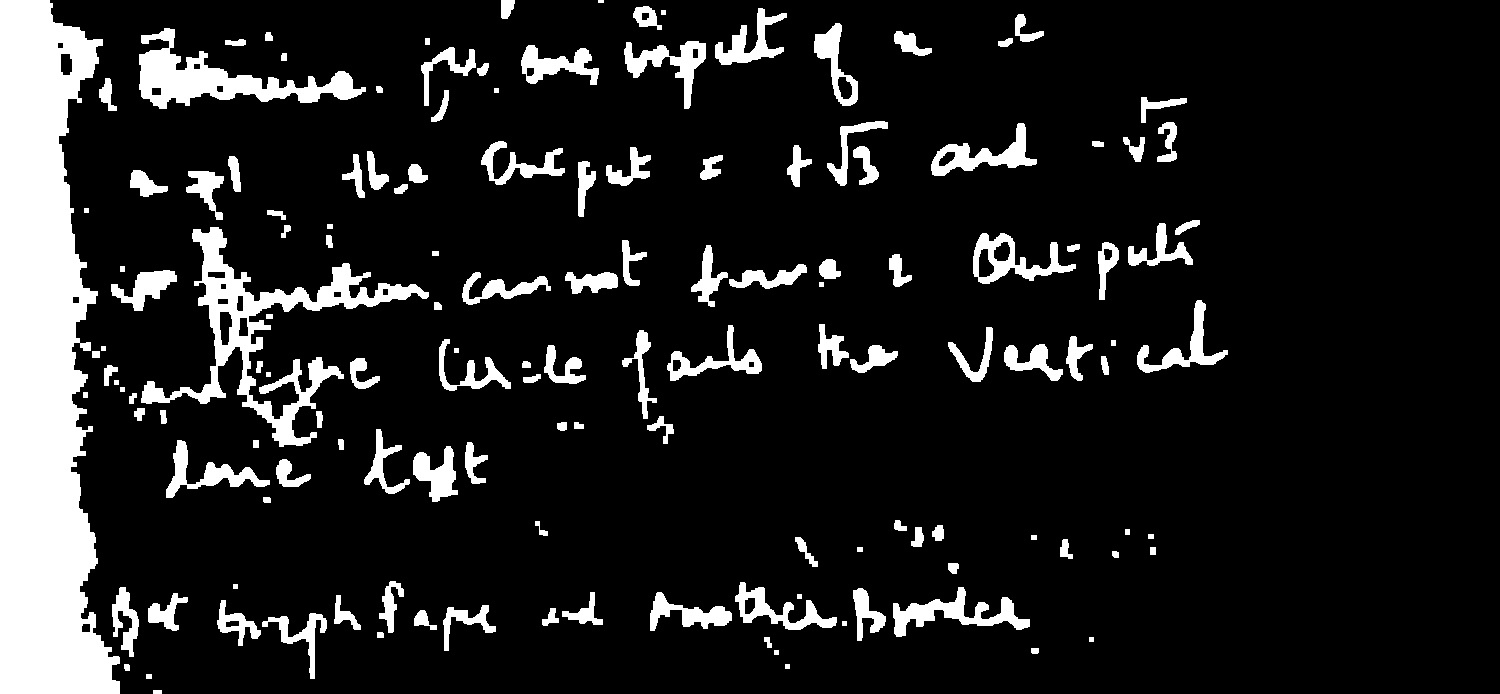 Because for one input of x
x = 1 the Output = +√3 and -√3
function cannot have 2 Outputs
and the Circle fails the Vertical
line test
Get Graph Paper and Another Binder